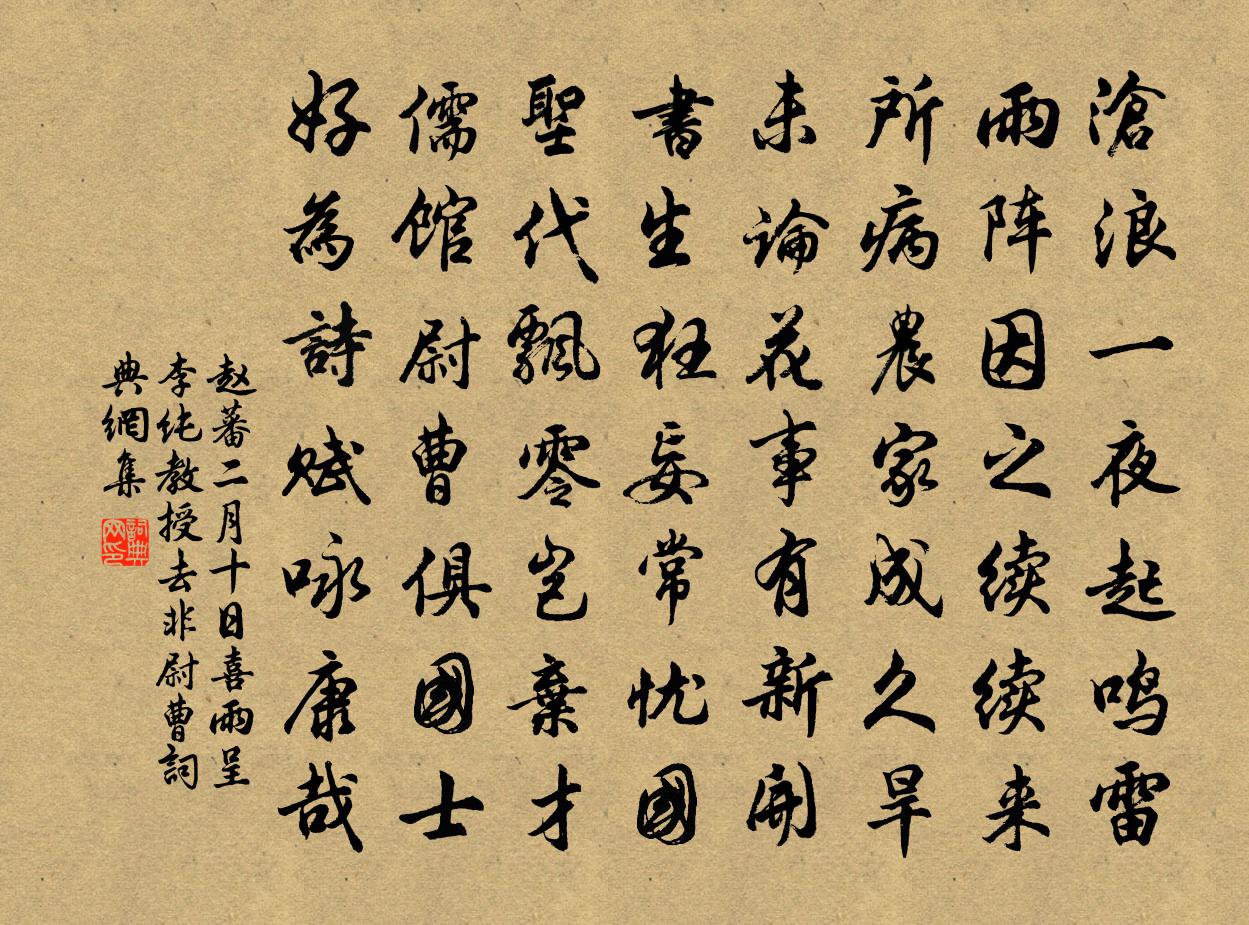 滄浪一夜起鸣雷
雨阵因之续续来
所病農家成久旱
未論花事有新開
書生狂妄常忧國
聖代飄零岂棄才
儒馆尉曹俱國士
好為詩赋咏康哉
赵蕃二月十日喜雨呈
李纯教授去非尉曹詞
典網集
詞典网印